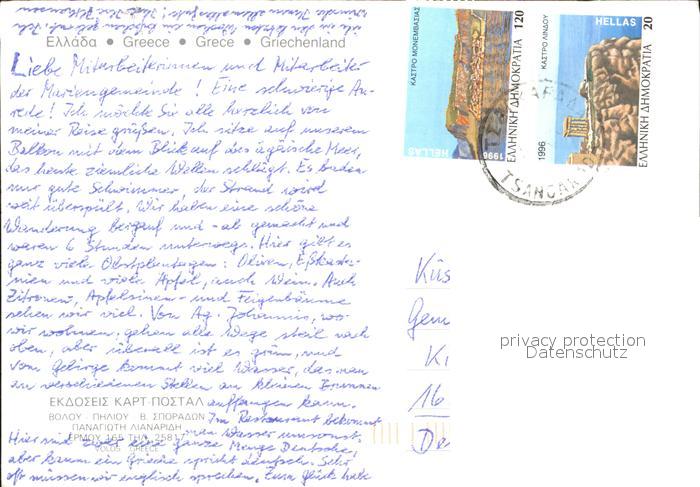 Ελλάδα • Greece • Grece • Griechenland
Liebe Mitarbeiterinnen und Mitarbeiter
der Mariengemeinde! Eine schwierige An-
rede! Ich möchte Sie alle herzlich von
meiner Reise grüßen. Ich sitze auf unserem
Balkon mit dem Blick auf das ägäische Meer,
das heute ziemliche Wellen schlägt. Es baden
nur gute Schwimmer, der Strand wird
weit überspült. Wir haben eine schöne
Wanderung bergauf und -ab gemacht und
waren 6 Stunden unterwegs. Hier gibt es
ganz viele Obstplantagen: Oliven, Eßkasta-
nien und viele Äpfel, auch Wein. Auch
Zitronen, Apfelsinen- und Feigenbäume
sehen wir viel. Von Ag. Johannis, wo
wir wohnen, gehen alle Wege steil nach
oben, aber überall ist es grün, und
vom Gebirge kommt viel Wasser, das man
an verschiedenen Stellen an kleinen Brunnen
auffangen kann.
ΕΚΔΟΣΕΙΣ ΚΑΡΤ-ΠΟΣΤΑΛ
ΒΟΛΟΥ - ΠΗΛΙΟΥ - Β. ΣΠΟΡΑΔΩΝ
ΠΑΝΑΓΙΩΤΗ ΛΙΑΝΑΡΙΔΗ
ΕΡΜΟΥ 165 ΤΗΛ. 25817
VOLOS GREECE
Im Restaurant bekommt
man Wasser umsonst.
Hier sind zwar eine ganze Menge Deutsche,
aber kaum ein Grieche spricht deutsch. Sehr
oft müssen wir englisch sprechen. Zum Glück habe
ΚΑΣΤΡΟ ΜΟΝΕΜΒΑΣΙΑΣ
120
ΕΛΛΗΝΙΚΗ ΔΗΜΟΚΡΑΤΙΑ
HELLAS
1996
ΚΑΣΤΡΟ ΛΙΝΔΟΥ
HELLAS
20
ΕΛΛΗΝΙΚΗ ΔΗΜΟΚΡΑΤΙΑ
1996
Küs
Gem
16
De
privacy protection
Datenschutz